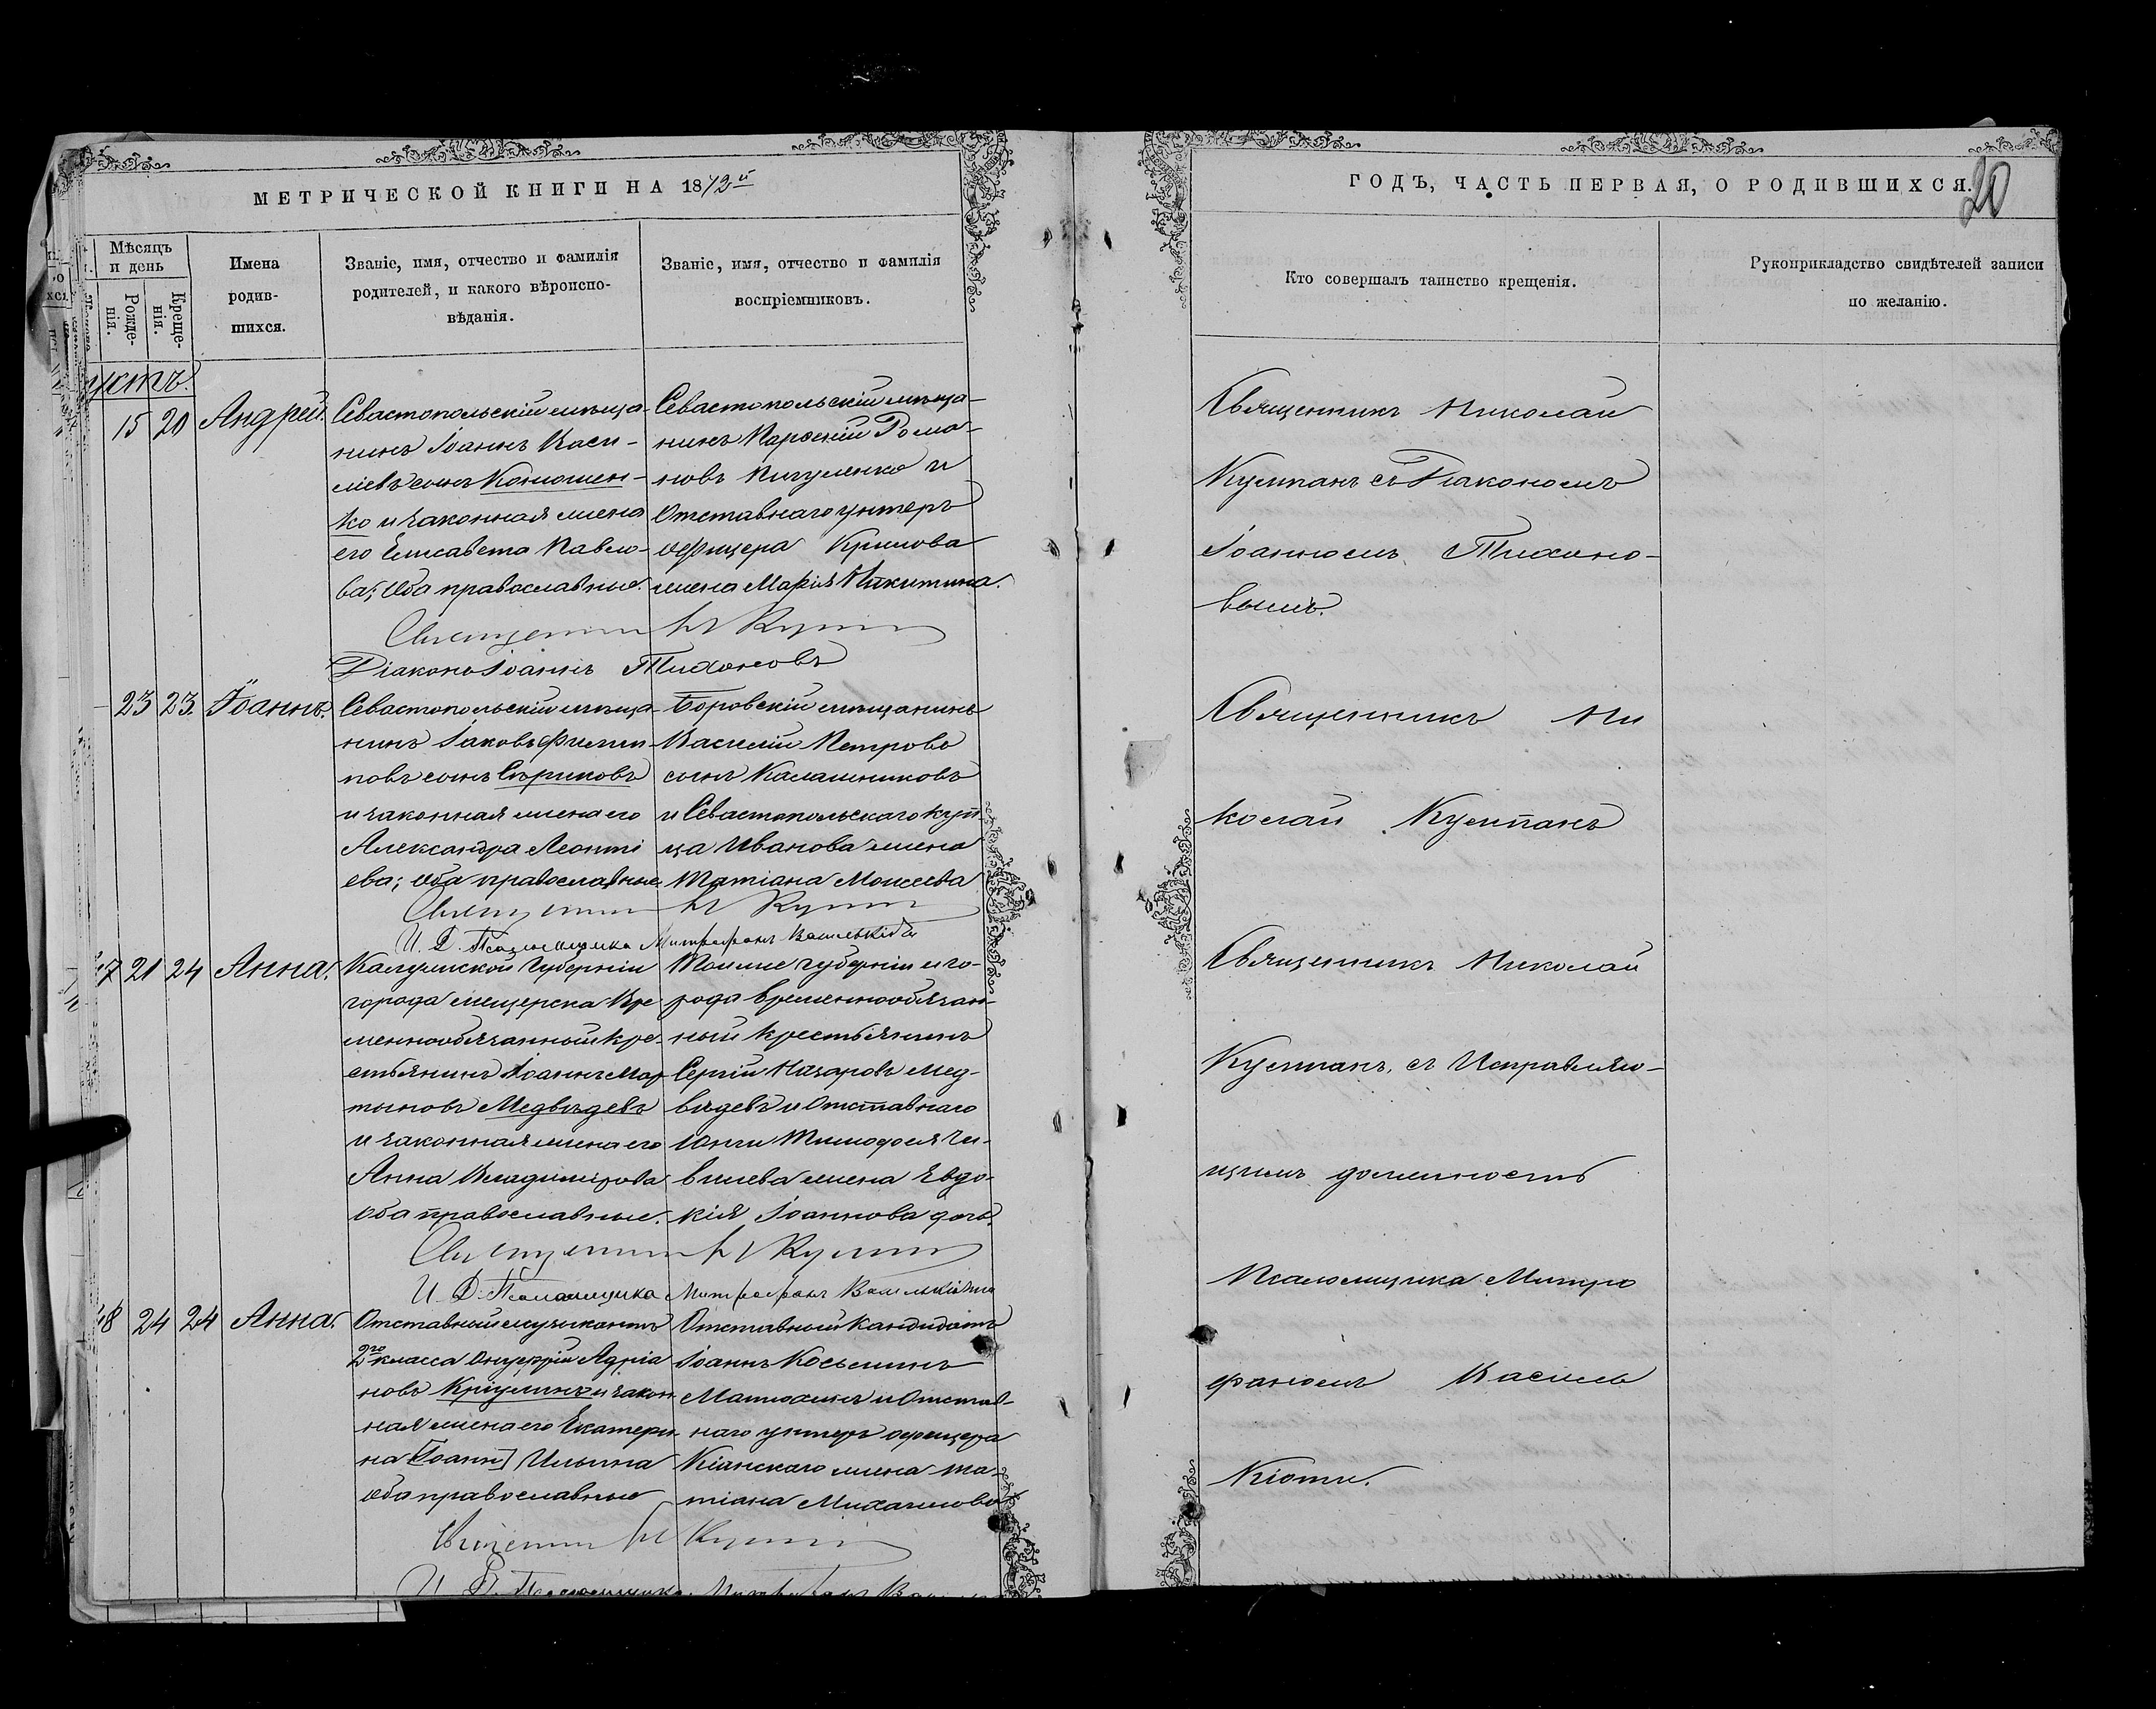 МЕТРИЧЕСКОЙ КНИГИ НА 1872й
ГОДЪ, ЧАСТЬ ПЕРВАЯ, О РОДИВШИХСЯ.
20
Мѣсяцъ и день
Рожде-нія.
Креще-нія.
Имена
родив-
шихся.
Званіе, имя, отчество и фамилія
родителей, и какого вѣроиспо-
вѣданія.
Званіе, имя, отчество и фамилія
воспріемниковъ.
Кто совершалъ таинство крещенія.
Рукоприкладство свидѣтелей записи
по желанію.
устъ.
15 20 Андрей.
Севастопольскій мѣща-
нинъ Іоаннъ Васи-
ліевъ сынъ Кономен-
ко и законная жена
его Елисавета Павло-
ва; оба православные.
Севастопольскій мѣща-
нинъ Парѳеній Рома-
новъ Пигуленко и
отставнаго унтеръ
офицера Крилова
жена Марія Никитина.
Священникъ Николай
Кулипанъ съ Діакономъ
Іоанномъ Тихоно-
вымъ.
Священникъ Н Кулип
Діаконъ Іоаннъ Тихоновъ
23 23. Іоаннъ.
Севастопольскій мѣща-
нинъ Іаковъ Филип-
повъ сынъ Сѣриковъ
и законная жена его
Александра Леонті
ева; оба православные.
Боровскій мѣщанинъ
Василій Петровъ
сынъ Калашниковъ
и Севастопольскаго куп
ца Иванова жена
Татіана Моисеева
Священникъ Ни
колай Кулипанъ
Священникъ Н Кулип
И. Д. Псаломщика Митрофанъ Василькіоти
17 21 24 Анна.
Калужской Губерніи
города Мещерска Вре
меннообязанный кре-
стьянинъ Іоаннъ Мар
тыновъ Медвѣдевъ
и законная жена его
Анна Владимірова
оба православные.
Той же губерніи и го-
рода временнообязан-
ный крестьянинъ
Сергій Назаровъ Мед-
вѣдевъ и отставнаго
Юнги Тимофея Чи-
вилева жена Евдо-
кія Іоаннова дочь.
Священникъ Николай
Кулипанъ, съ Исправляю-
щимъ должность
Псаломщика Митро
фаномъ Василь
Кіоти.
Священникъ Н Кулип
И. Д. Псаломщика Митрофанъ Василькіоти
18 24 24 Анна.
Отставный музыкантъ
2го класса Онуфрій Адріа
новъ Кріулинъ и закон
ная жена его Екатери
на [Іоанн] Ильина
оба православные
Отставный кандидатъ
Іоаннъ Косьминъ
Матюхинъ и отстав-
наго унтеръ офицера
Кіанскаго жена Та-
тіана Михаилова
Священникъ Н Кулип
И. Д. Псаломщика Митрофанъ Ва